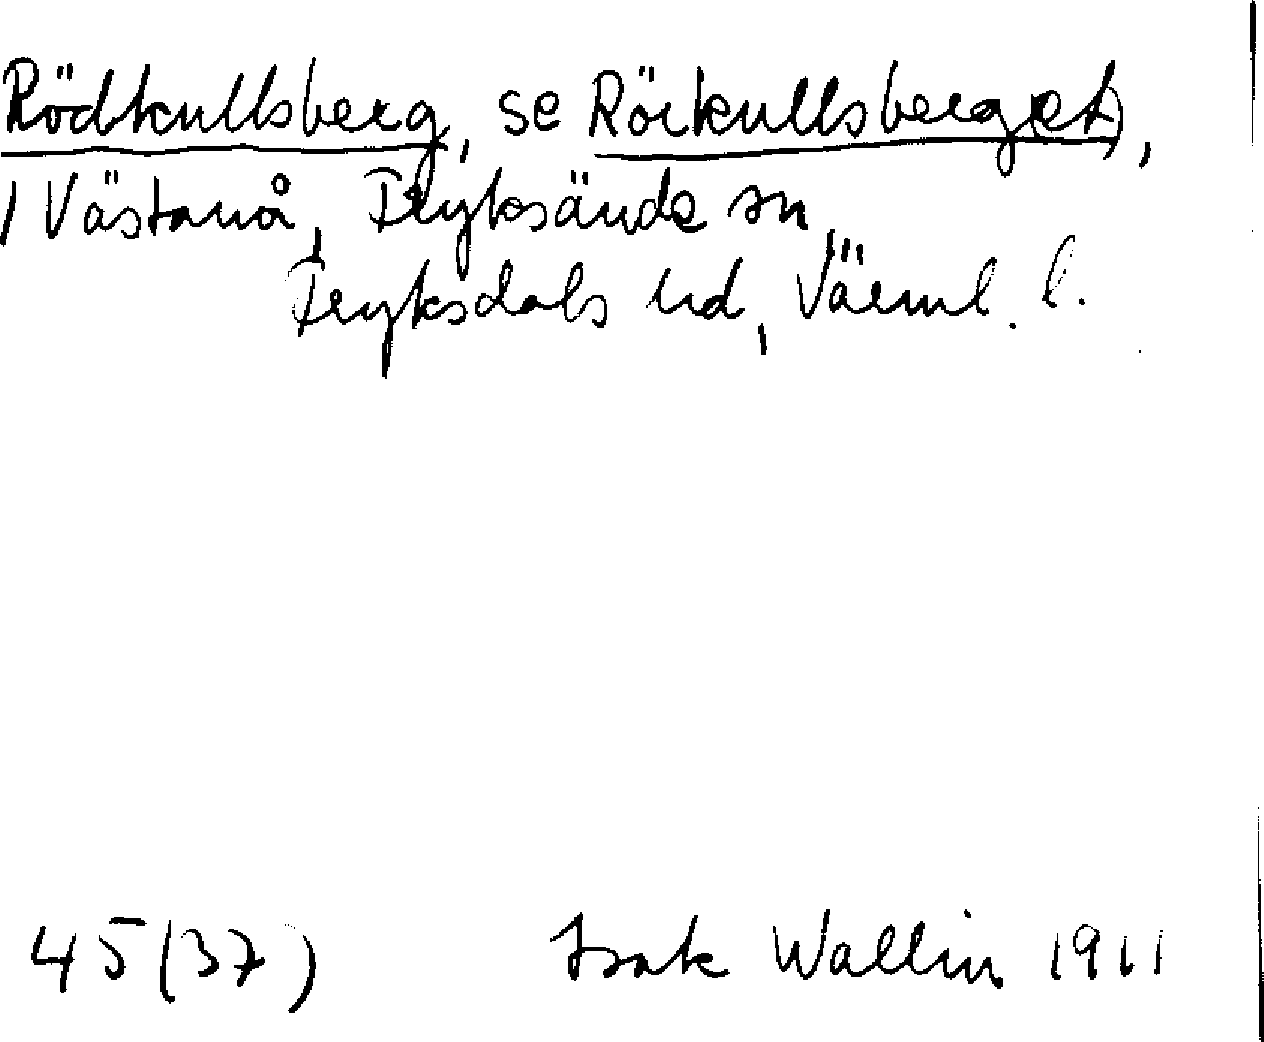 Rödkullsberg, se Rörkullsberg(et),
i Västanå, Fryksände sn,
Fryksdals hd, Värml. l.
45(37) Isak Wallin 1911